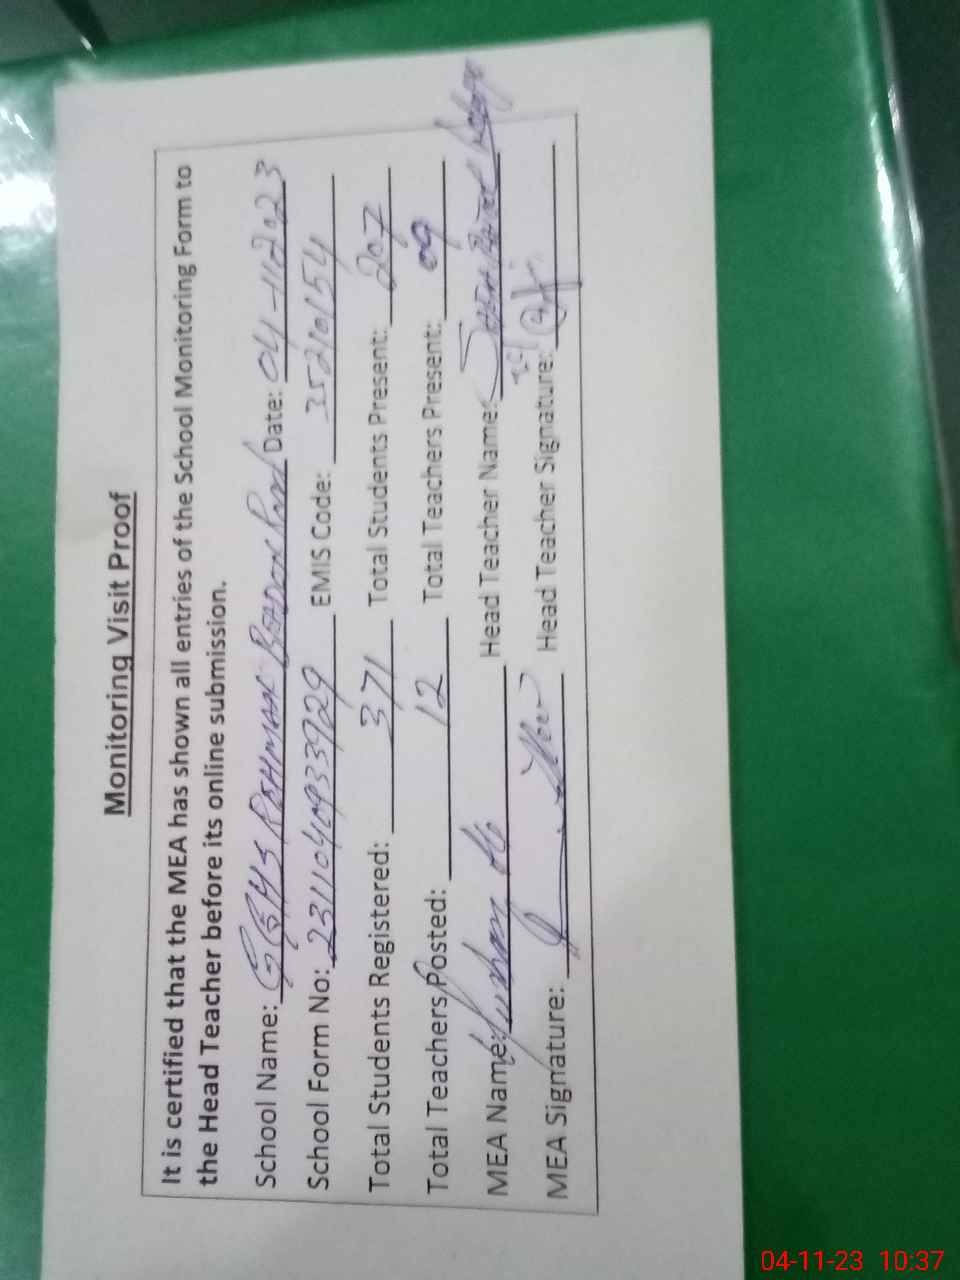 Monitoring Visit Proof
It is certified that the MEA has shown all entries of the School Monitoring Form to
the Head Teacher before its online submission.
School Name: GGHS REHMANI BEADON Road Date: 04-11-2023
School Form No: 231104093392 9 EMIS Code: 35210154
Total Students Registered: 371 Total Students Present: 207
Total Teachers Posted: 12 Total Teachers Present: 09
MEA Name: Head Teacher Name:
MEA Signature: Head Teacher Signature:
04-11-23 10:37